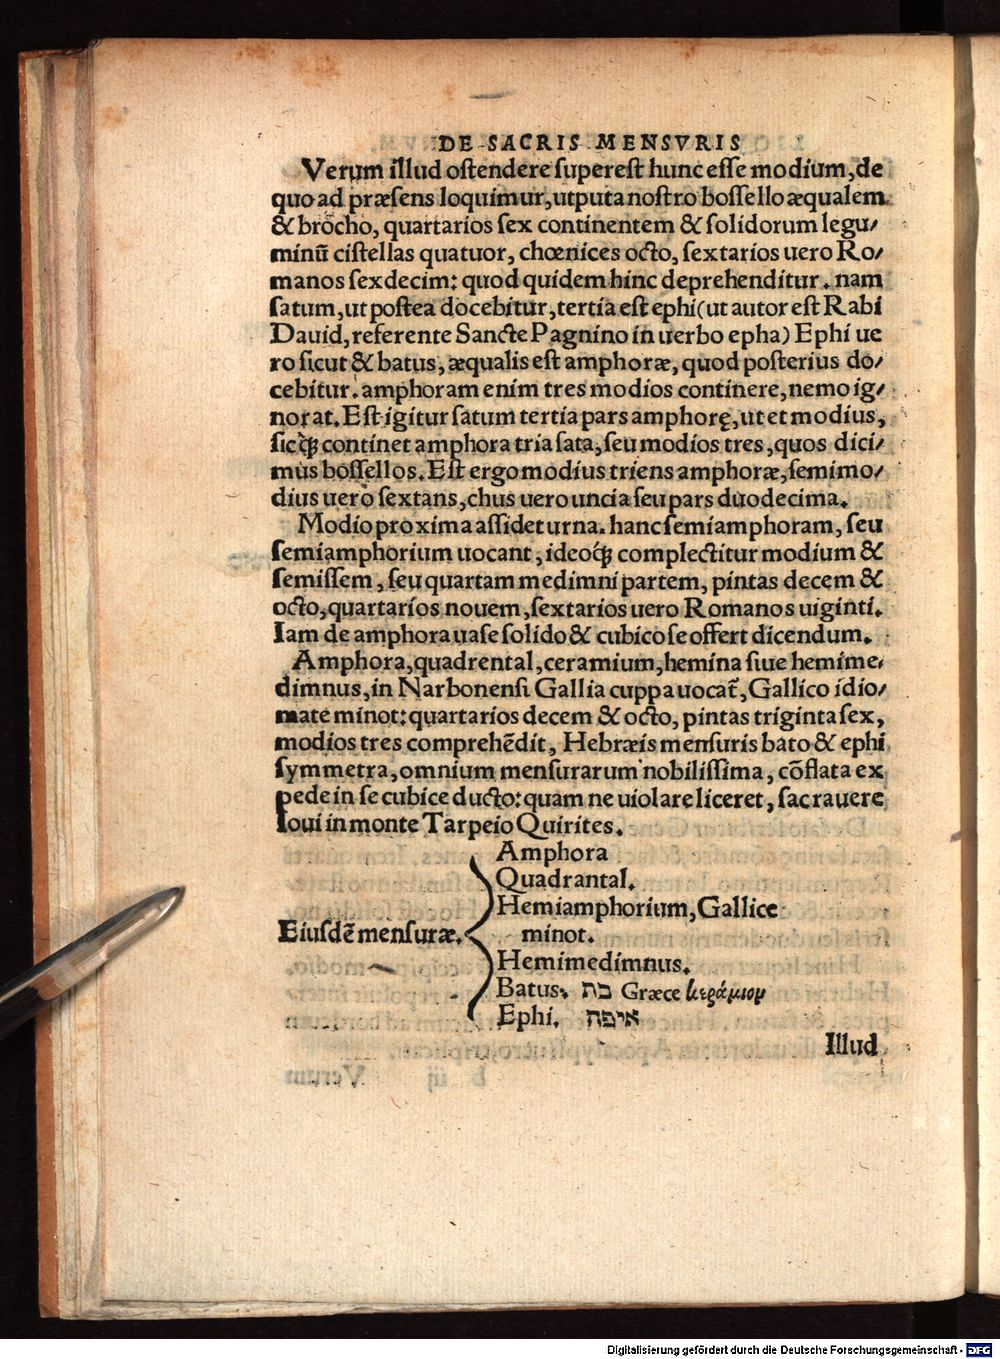 DE SACRIS MENSVRIS
Verum illud ostendere superest hunc esse modium, de
quo ad præsens loquimur, utputa nostro bossello æqualem
& brocho, quartarios sex continentem & solidorum legu/
minū cistellas quatuor, chœnices octo, sextarios uero Ro/
manos sexdecim: quod quidem hinc deprehenditur. nam
satum, ut postea docebitur, tertia est ephi (ut autor est Rabi
Dauid, referente Sancte Pagnino in uerbo epha) Ephi ue
ro sicut & batus, æqualis est amphoræ, quod posterius do/
cebitur. amphoram enim tres modios continere, nemo ig/
norat. Est igitur satum tertia pars amphorę, ut et modius,
sicq̃ continet amphora tria sata, seu modios tres, quos dici/
mus bossellos. Est ergo modius triens amphoræ, semimo/
dius uero sextans, chus uero uncia seu pars duodecima.
Modio proxima assidet urna. hanc semiamphoram, seu
semiamphorium uocant, ideoq̃ complectitur modium &
semissem, seu quartam medimni partem, pintas decem &
octo, quartarios nouem, sextarios uero Romanos uiginti.
Iam de amphora uase solido & cubico se offert dicendum.
Amphora, quadrental, ceramium, hemina siue hemime/
dimnus, in Narbonensi Gallia cuppa uocat̃, Gallico idio/
mate minot: quartarios decem & octo, pintas triginta sex,
modios tres comprehēdit, Hebræis mensuris bato & ephi
symmetra, omnium mensurarum nobilissima, cōflata ex
pede in se cubice ducto: quam ne uiolare liceret, sacrauere
Ioui in monte Tarpeio Quirites.
Amphora
Quadrantal.
Hemiamphorium, Gallice
Eiusdē mensuræ. minot.
Hemimedimnus.
Batus. בת Græce κεράμιον
Ephi. איפה
Illud
Digitalisierung gefördert durch die Deutsche Forschungsgemeinschaft - DFG